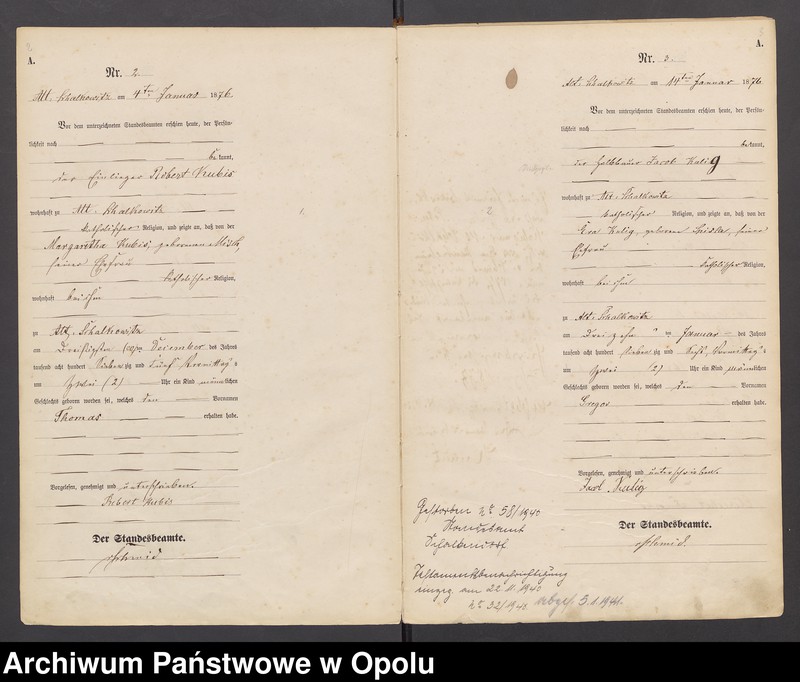 A.
Nr. 2.
Alt Schalkowitz am 4ten Januar 1876
Vor dem unterzeichneten Standesbeamten erschien heute, der Persön-
lichkeit nach
bekannt,
der Einlieger Robert Kubis
wohnhaft zu Alt Schalkowitz
katholischer Religion, und zeigte an, daß von der
Margaretha Kubis, geborenen
seiner Ehefrau
katholischer Religion,
wohnhaft bei ihm
zu Alt Schalkowitz
am dreißigsten (30) Dezember des Jahres
tausend acht hundert siebenzig und fünf Vormittags
um zwei (2) Uhr ein Kind männlichen
Geschlechts geboren worden sei, welches den Vornamen
Thomas erhalten habe.
Vorgelesen, genehmigt und unterschrieben.
Robert Kubis
Der Standesbeamte.
Schmid
A.
Nr. 3.
Alt Schalkowitz am 14ten Januar 1876
Vor dem unterzeichneten Standesbeamten erschien heute, der Persön-
lichkeit nach
bekannt,
der Halbbauer Jacob Kulig
wohnhaft zu Alt Schalkowitz
katholischer Religion, und zeigte an, daß von der
Eva Kulig, geborenen seiner
Ehefrau
katholischer Religion,
wohnhaft bei ihm
zu Alt Schalkowitz
am dreizehn ten Januar des Jahres
tausend acht hundert siebenzig und sechs Vormittags
um zwei (2) Uhr ein Kind männlichen
Geschlechts geboren worden sei, welches den Vornamen
Gregor erhalten habe.
Vorgelesen, genehmigt und unterschrieben.
Kulig
Der Standesbeamte.
Schmid
Gestorben Nr 58/1940
Standesamt
Schalkendorf
Testamentsbenachrichtigung
am 22.11.1940
Nr 32/1940 abges. 3.1.1941.
Archiwum Państwowe w Opolu